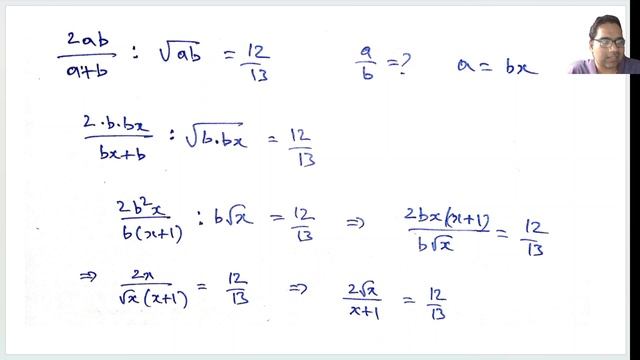 2ab/(a+b) : √ab = 12/13    a/b = ?    a = bx
2·b·bx/(bx+b) : √b·bx = 12/13
2b²x/(b(x+1)) : b√x = 12/13 ⇒ 2bx(x+1)/(b√x) = 12/13
⇒ 2x/(√x(x+1)) = 12/13 ⇒ 2√x/(x+1) = 12/13